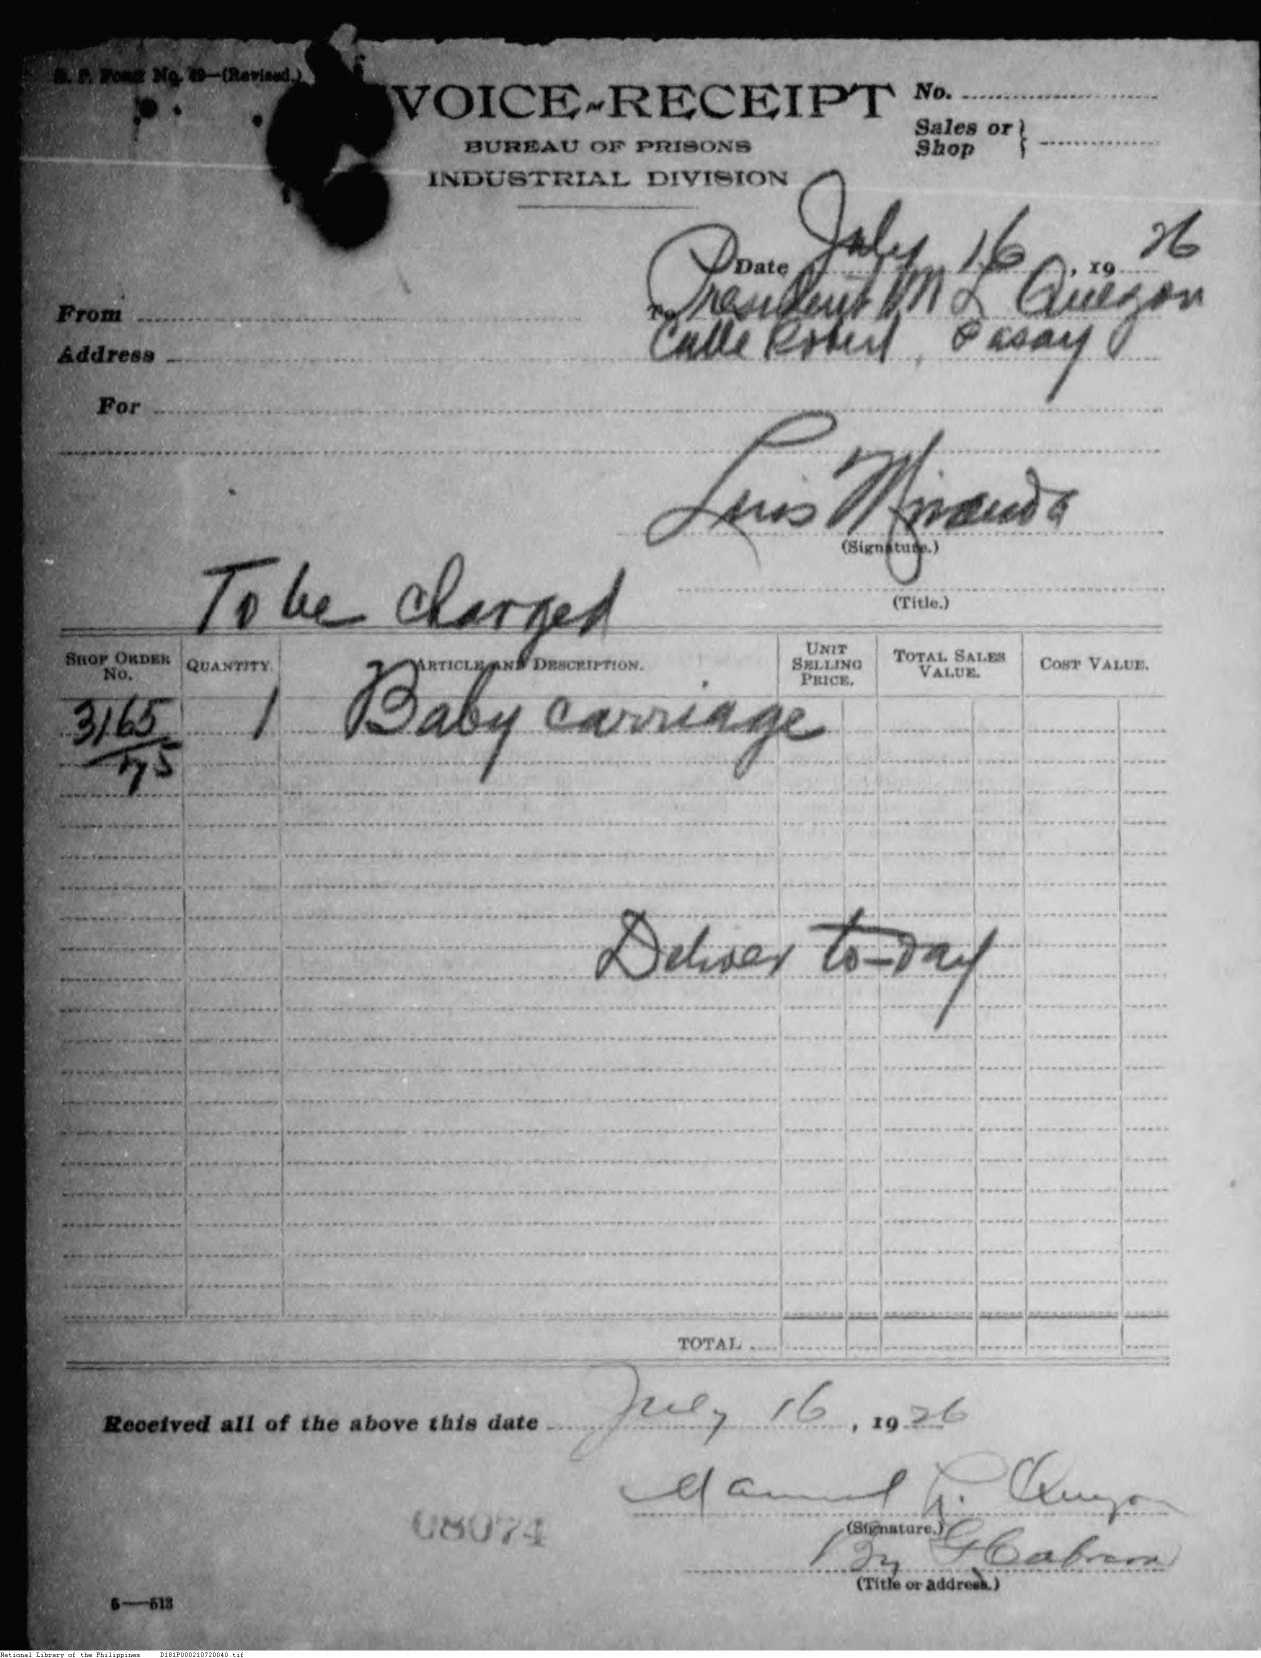 B. P. Form No. 49—(Revised.)
VOICE-RECEIPT
BUREAU OF PRISONS
INDUSTRIAL DIVISION
No.
Sales or
Shop
Date July 16, 1926
From
To President M L Quezon
Address
Calle Robert, Pasay
For
Luis Miranda
(Signature.)
(Title.)
To be charged
SHOP ORDER NO. QUANTITY. ARTICLE AND DESCRIPTION. UNIT SELLING PRICE. TOTAL SALES VALUE. COST VALUE.
3165 1 Baby carriage
Deliver to-day
TOTAL
Received all of the above this date July 16, 1926
Manuel L. Quezon
(Signature.)
By G Cabrera
(Title or address.)
08074
6—613
National Library of the Philippines D181P000210720040.tif